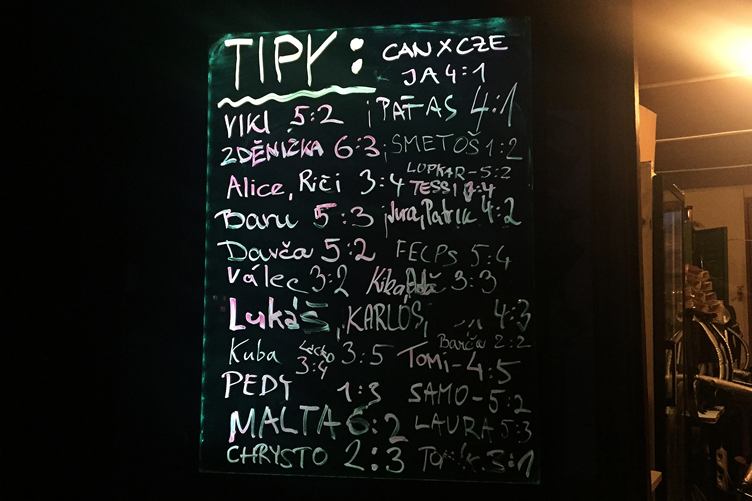 TIPY: CAN X CZE
JA 4:1
VIKI 5:2 ; PAŤAS 4:1
ZDĚNIČKA 6:3 ; SMETOŠ 1:2
LUPKAR - 5:2
Alice, Riči 3:4 TESSI 3:4
Baru 5:3 ; Jura, Patrik 4:2
Davča 5:2 FECPS 5:4
Válec 3:2 Kiba, 3:3
Lukáš, KARLOS, 4:3
Barča 2:2
Kuba Lacko 3:4 3:5 Tomi - 4:5
PEDY 1:3 SAMO - 5:2
MALTA 6:2 LAURA 5:3
CHRYSTO 2:3 3:1